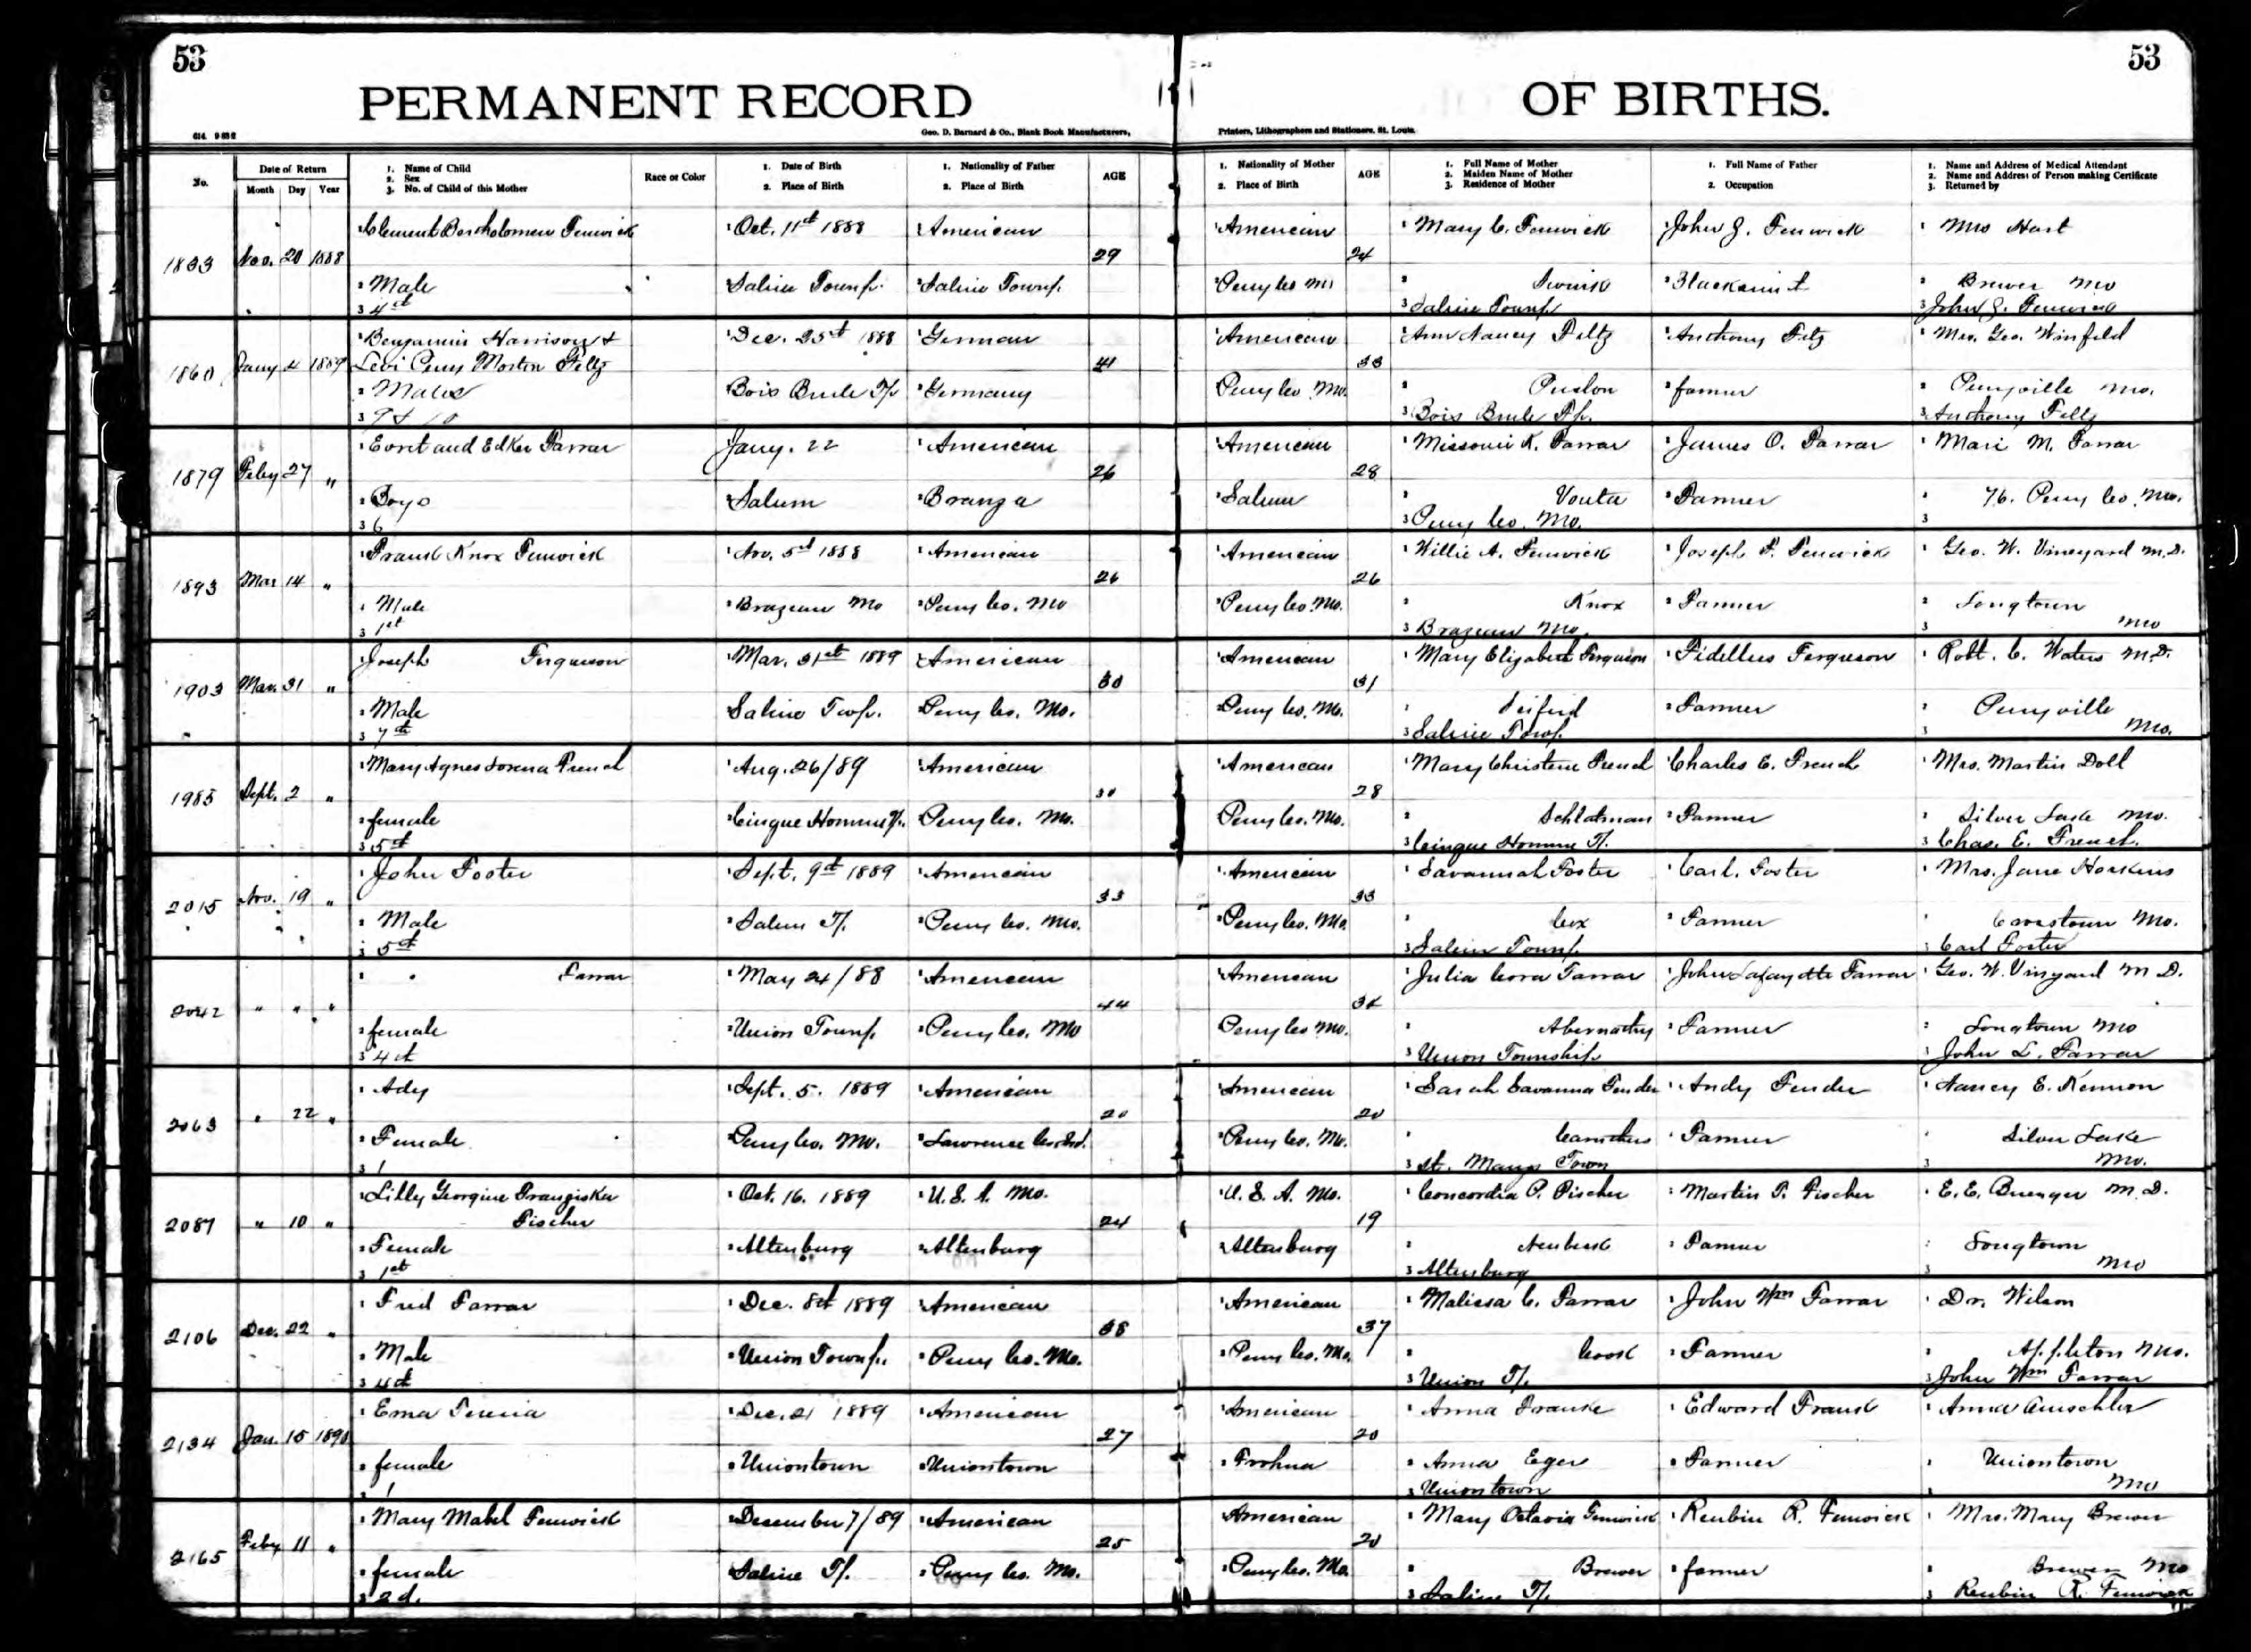 53
53
PERMANENT RECORD OF BIRTHS.
614 9882
Geo. D. Barnard & Co., Blank Book Manufacturers, Printers, Lithographers and Stationers, St. Louis.
No. Date of Return Month Day Year
1. Name of Child
2. Sex
3. No. of Child of this Mother
Race or Color
1. Date of Birth
2. Place of Birth
1. Nationality of Father
2. Place of Birth
AGE
1. Nationality of Mother
2. Place of Birth
AGE
1. Full Name of Mother
2. Maiden Name of Mother
3. Residence of Mother
1. Full Name of Father
2. Occupation
1. Name and Address of Medical Attendant
2. Name and Address of Person making Certificate
3. Returned by
1 Clement Bartholomew Fenwick 1 Oct. 11th 1888 1 American 1 American 1 Mary C. Fenwick 1 John J. Fenwick 1 Mrs Hart
1833 Nov. 20 1888 29 24
2 Male 2 Saline Townp. 2 Saline Townp. 2 Perry Co Mo 2 2 Blacksmit 2 Brewer Mo
3 4th 3 Saline Townp 3 John J. Fenwick
1 Benjamin Harrison & 1 Dec. 25th 1888 1 German 1 American 1 Ann Nancy Feltz 1 Anthony Feltz 1 Mrs. Geo. Winfield
1860 Jany 4 1889 Levi Perry Morton Feltz 41 33
2 Males Bois Brule Tp 2 Germany Perry Co Mo. 2 2 farmer 2 Perryville Mo.
3 9 & 10 3 Bois Brule Tp. 3 Anthony Feltz
1 Evert and Edker Farrar Jany. 22 1 American American 1 Missouri K. Farrar 1 James O. Farrar 1 Mari M. Farrar
1879 Feby 27 " 26 28
2 Boys 2 Salum 2 2 Salum 2 2 Farmer 2 76. Perry Co. Mo.
3 6 3 Perry Co. Mo. 3
1 Frank Knox Fenwick 1 Nov. 5th 1888 1 American 1 American 1 Willie A. Fenwick 1 Joseph F. Fenwick 1 Geo. W. Vineyard M.D.
1893 Mar 14 " 26 26
2 Male 2 Brazeau Mo 2 Perry Co. Mo 2 Perry Co. Mo. 2 Knox 2 Farmer 2 Longtown
3 1st 3 Brazeau Mo. 3 Mo
1 Joseph Ferguson 1 Mar. 31st 1889 1 American 1 American 1 Mary Elizabeth Ferguson 1 Fidellus Ferguson 1 Robt. C. Waters M.D.
1903 Mar. 31 " 30 31
2 Male Saline Twp. Perry Co. Mo. Perry Co. Mo. 2 2 Farmer 2 Perryville
3 7th 3 Saline Twp. 3 Mo.
1 Mary Agnes Lorena French 1 Aug. 26/89 1 American 1 American 1 Mary Christene French 1 Charles E. French 1 Mrs. Martin Doll
1985 Sept. 2 " 30 28
2 female 2 Cinque Homme Tp. Perry Co. Mo. Perry Co. Mo. 2 Schlatman 2 Farmer 2 Silver Lake Mo.
3 5th 3 Cinque Homme Tp. 3 Chas. E. French.
1 John Foster 1 Sept. 9th 1889 1 American 1 American 1 Savannah Foster 1 Carl. Foster 1 Mrs. Jane Hoskins
2015 Nov. 19 " 33 33
2 Male 2 Salem Tp. 2 Perry Co. Mo. 2 Perry Co. Mo. 2 Cox 2 Farmer Crosstown Mo.
3 5th 3 Salem Townp. 3 Carl Foster
1 Farrar 1 May 24/88 1 American 1 American 1 Julia Cora Farrar 1 John Lafayette Farrar 1 Geo. W. Vinyard M D.
2042 " " " 44
2 female 2 Union Townp. 2 Perry Co. Mo Perry Co Mo. 2 Abernathy 2 Farmer 2 Longtown Mo
3 4th 3 Union Township 3 John L. Farrar
1 Ady 1 Sept. 5. 1889 1 American 1 American 1 Sarah Savanna Fender 1 Andy Fender 1 Nancy E. Kennon
2063 " 22 " 20 20
2 Female Perry Co. Mo. 2 Lawrence Co. Ind. 2 Perry Co. Mo. 2 2 Farmer 2 Silver Lake
3 1 3 St. Marys Town 3 Mo.
1 Lilly Georgine Franziska 1 Oct. 16. 1889 1 U.S.A. Mo. 1 U.S.A. Mo. 1 Concordia P. Fischer 1 Martin T. Fischer 1 E. E. Buenger M.D.
2087 " 10 " Fischer 24 19
2 Female 2 Altenburg 2 Altenburg 2 Altenburg 2 2 Farmer 2 Longtown
3 1st 3 Altenburg 3 Mo
1 Fred Farrar 1 Dec. 8th 1889 1 American 1 American 1 Malissa C. Farrar 1 John Wm Farrar 1 Dr. Wilson
2106 Dec. 22 " 38 37
2 Male 2 Union Townp. 2 Perry Co. Mo. 2 Perry Co. Mo. 2 Cook 2 Farmer 2 Appleton Mo.
3 4th 3 Union Tp. 3 John Wm Farrar
1 Ema Teresia 1 Dec. 21 1889 1 American 1 American 1 Anna Franke 1 Edward Frank 1 Anna
2134 Jan. 15 1890 27 20
2 female 2 Uniontown 2 Uniontown 2 Frohna 2 Anna Eger 2 Farmer Uniontown
3 1 3 Uniontown Mo
1 Mary Mabel Fenwick 1 December 7/89 1 American American 1 Mary Octavia Fenwick 1 Reubin R. Fenwick 1 Mrs. Mary Brewer
2165 Feby 11 " 25 20
2 female Saline Tp. 2 Perry Co. Mo. 2 Perry Co. Mo. 2 Brewer 2 farmer 2 Brewer Mo
3 2d. 3 Saline Tp. 3 Reubin R. Fenwick